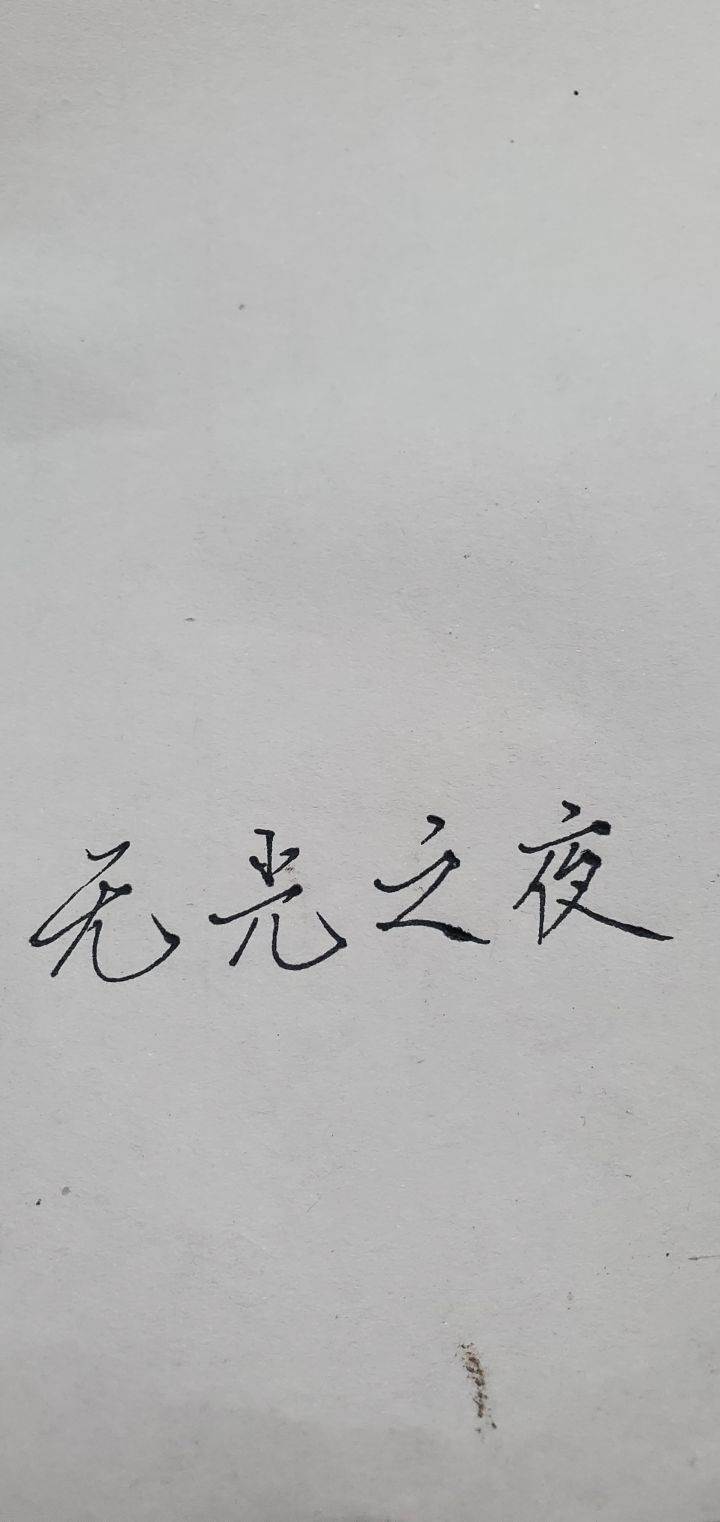 无光之夜